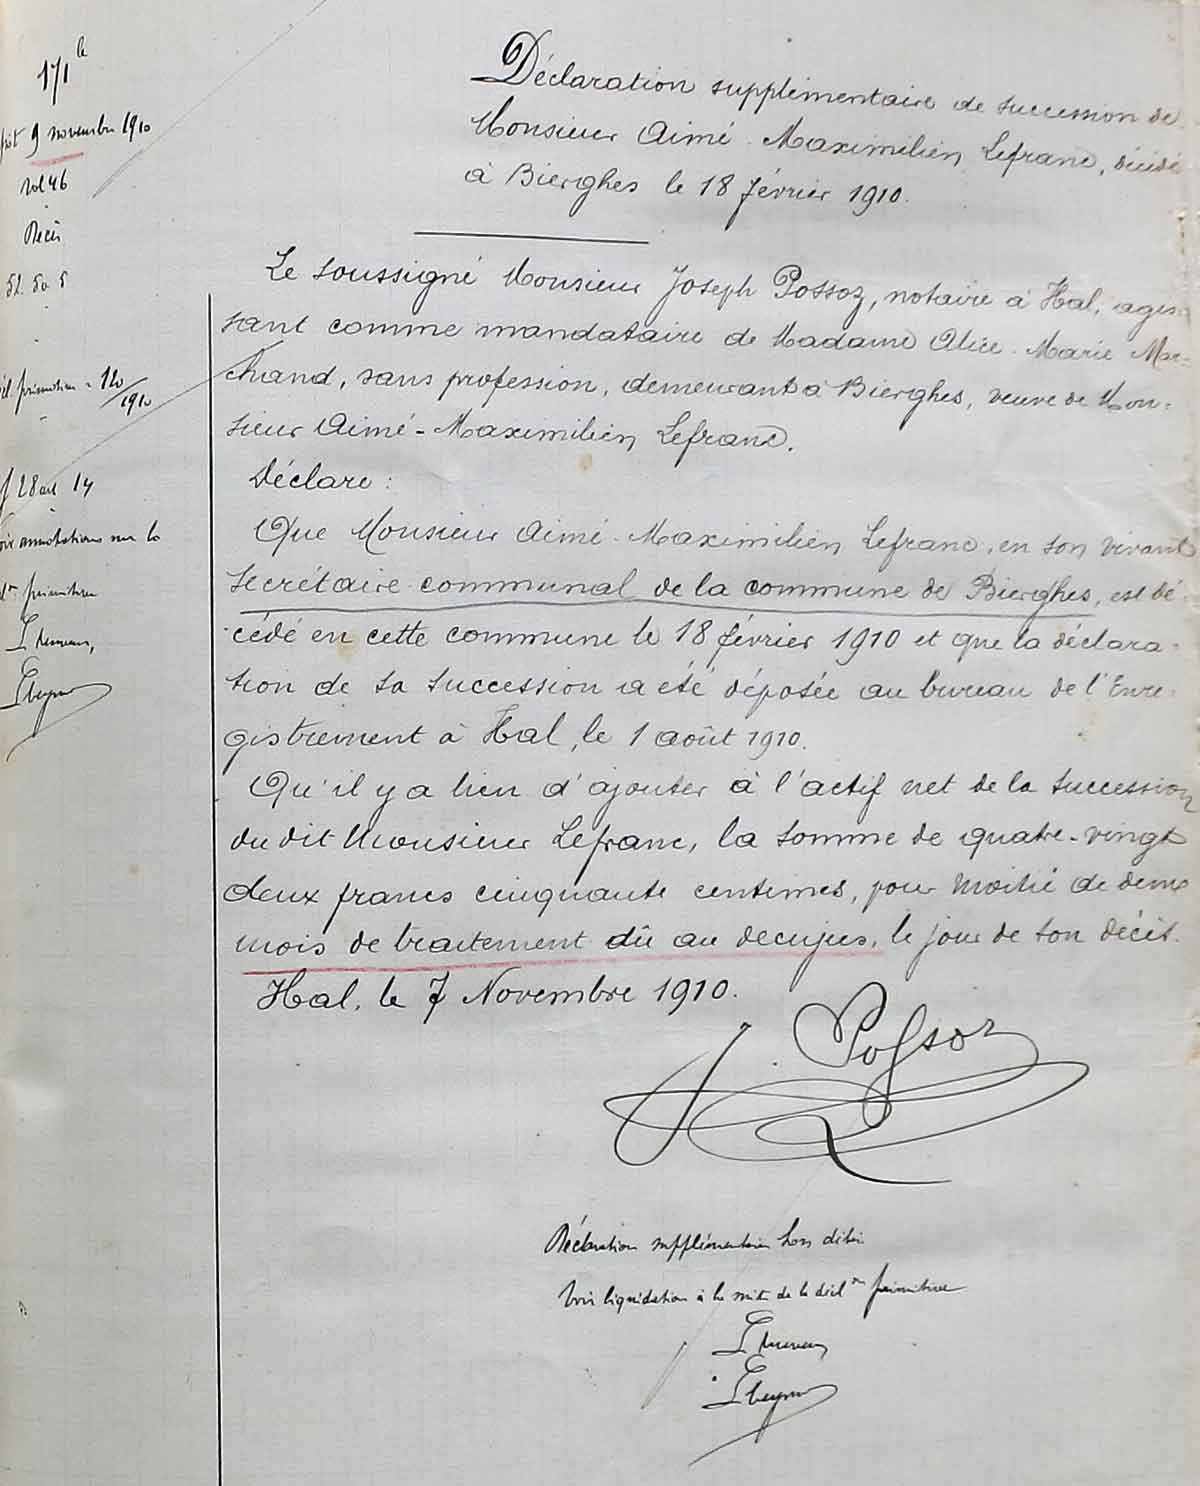 171 le
9 novembre 1910
vol 46
Recu
Décl. primitive - 120/1910
28 14
Voir annotations sur la
primitive
Déclaration supplémentaire de succession de
Monsieur Aimé-Maximilien Lefranc, décédé
à Bierghes le 18 février 1910.
Le soussigné Monsieur Joseph Possoz, notaire à Hal, agis-
sant comme mandataire de Madame Alice-Marie Mar-
chand, sans profession, demeurant à Bierghes, veuve de Mon-
sieur Aimé-Maximilien Lefranc.
Déclare :
Que Monsieur Aimé-Maximilien Lefranc, en son vivant
secrétaire communal de la commune de Bierghes, est dé-
cédé en cette commune le 18 février 1910 et que la déclara-
tion de sa succession a été déposée au bureau de l'Enre-
gistrement à Hal, le 1 août 1910.
Qu'il y a lieu d'ajouter à l'actif net de la succession
du dit Monsieur Lefranc, la somme de quatre-vingt
deux francs cinquante centimes, pour moitié de deux
mois de traitement dû au decujus, le jour de son décès.
Hal, le 7 Novembre 1910.
J. Possoz
Déclaration supplémentaire hors délai
Voir liquidation à la suite de la décl on primitive